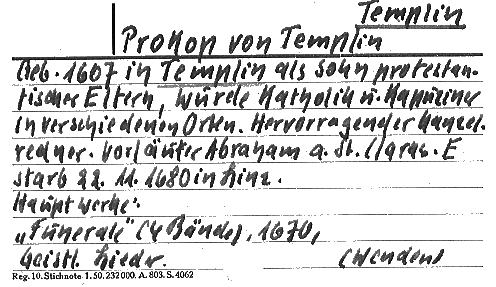 Templin
Prokop von Templin
Geb. 1607 in Templin als Sohn protestan-
tischer Eltern, wurde Katholik u. Kapuziner
in verschiedenen Orten. Hervorragender Kanzel-
redner. Vorläufer Abraham a. St. Claras. E
starb 22. 11. 1680 in Linz.
Hauptwerke:
„Funerale" (4 Bände), 1670,
Geistl. Lieder.
(Wendens
Reg. 10. Stichnote. 1. 50. 232 000. A. 803. S. 4062